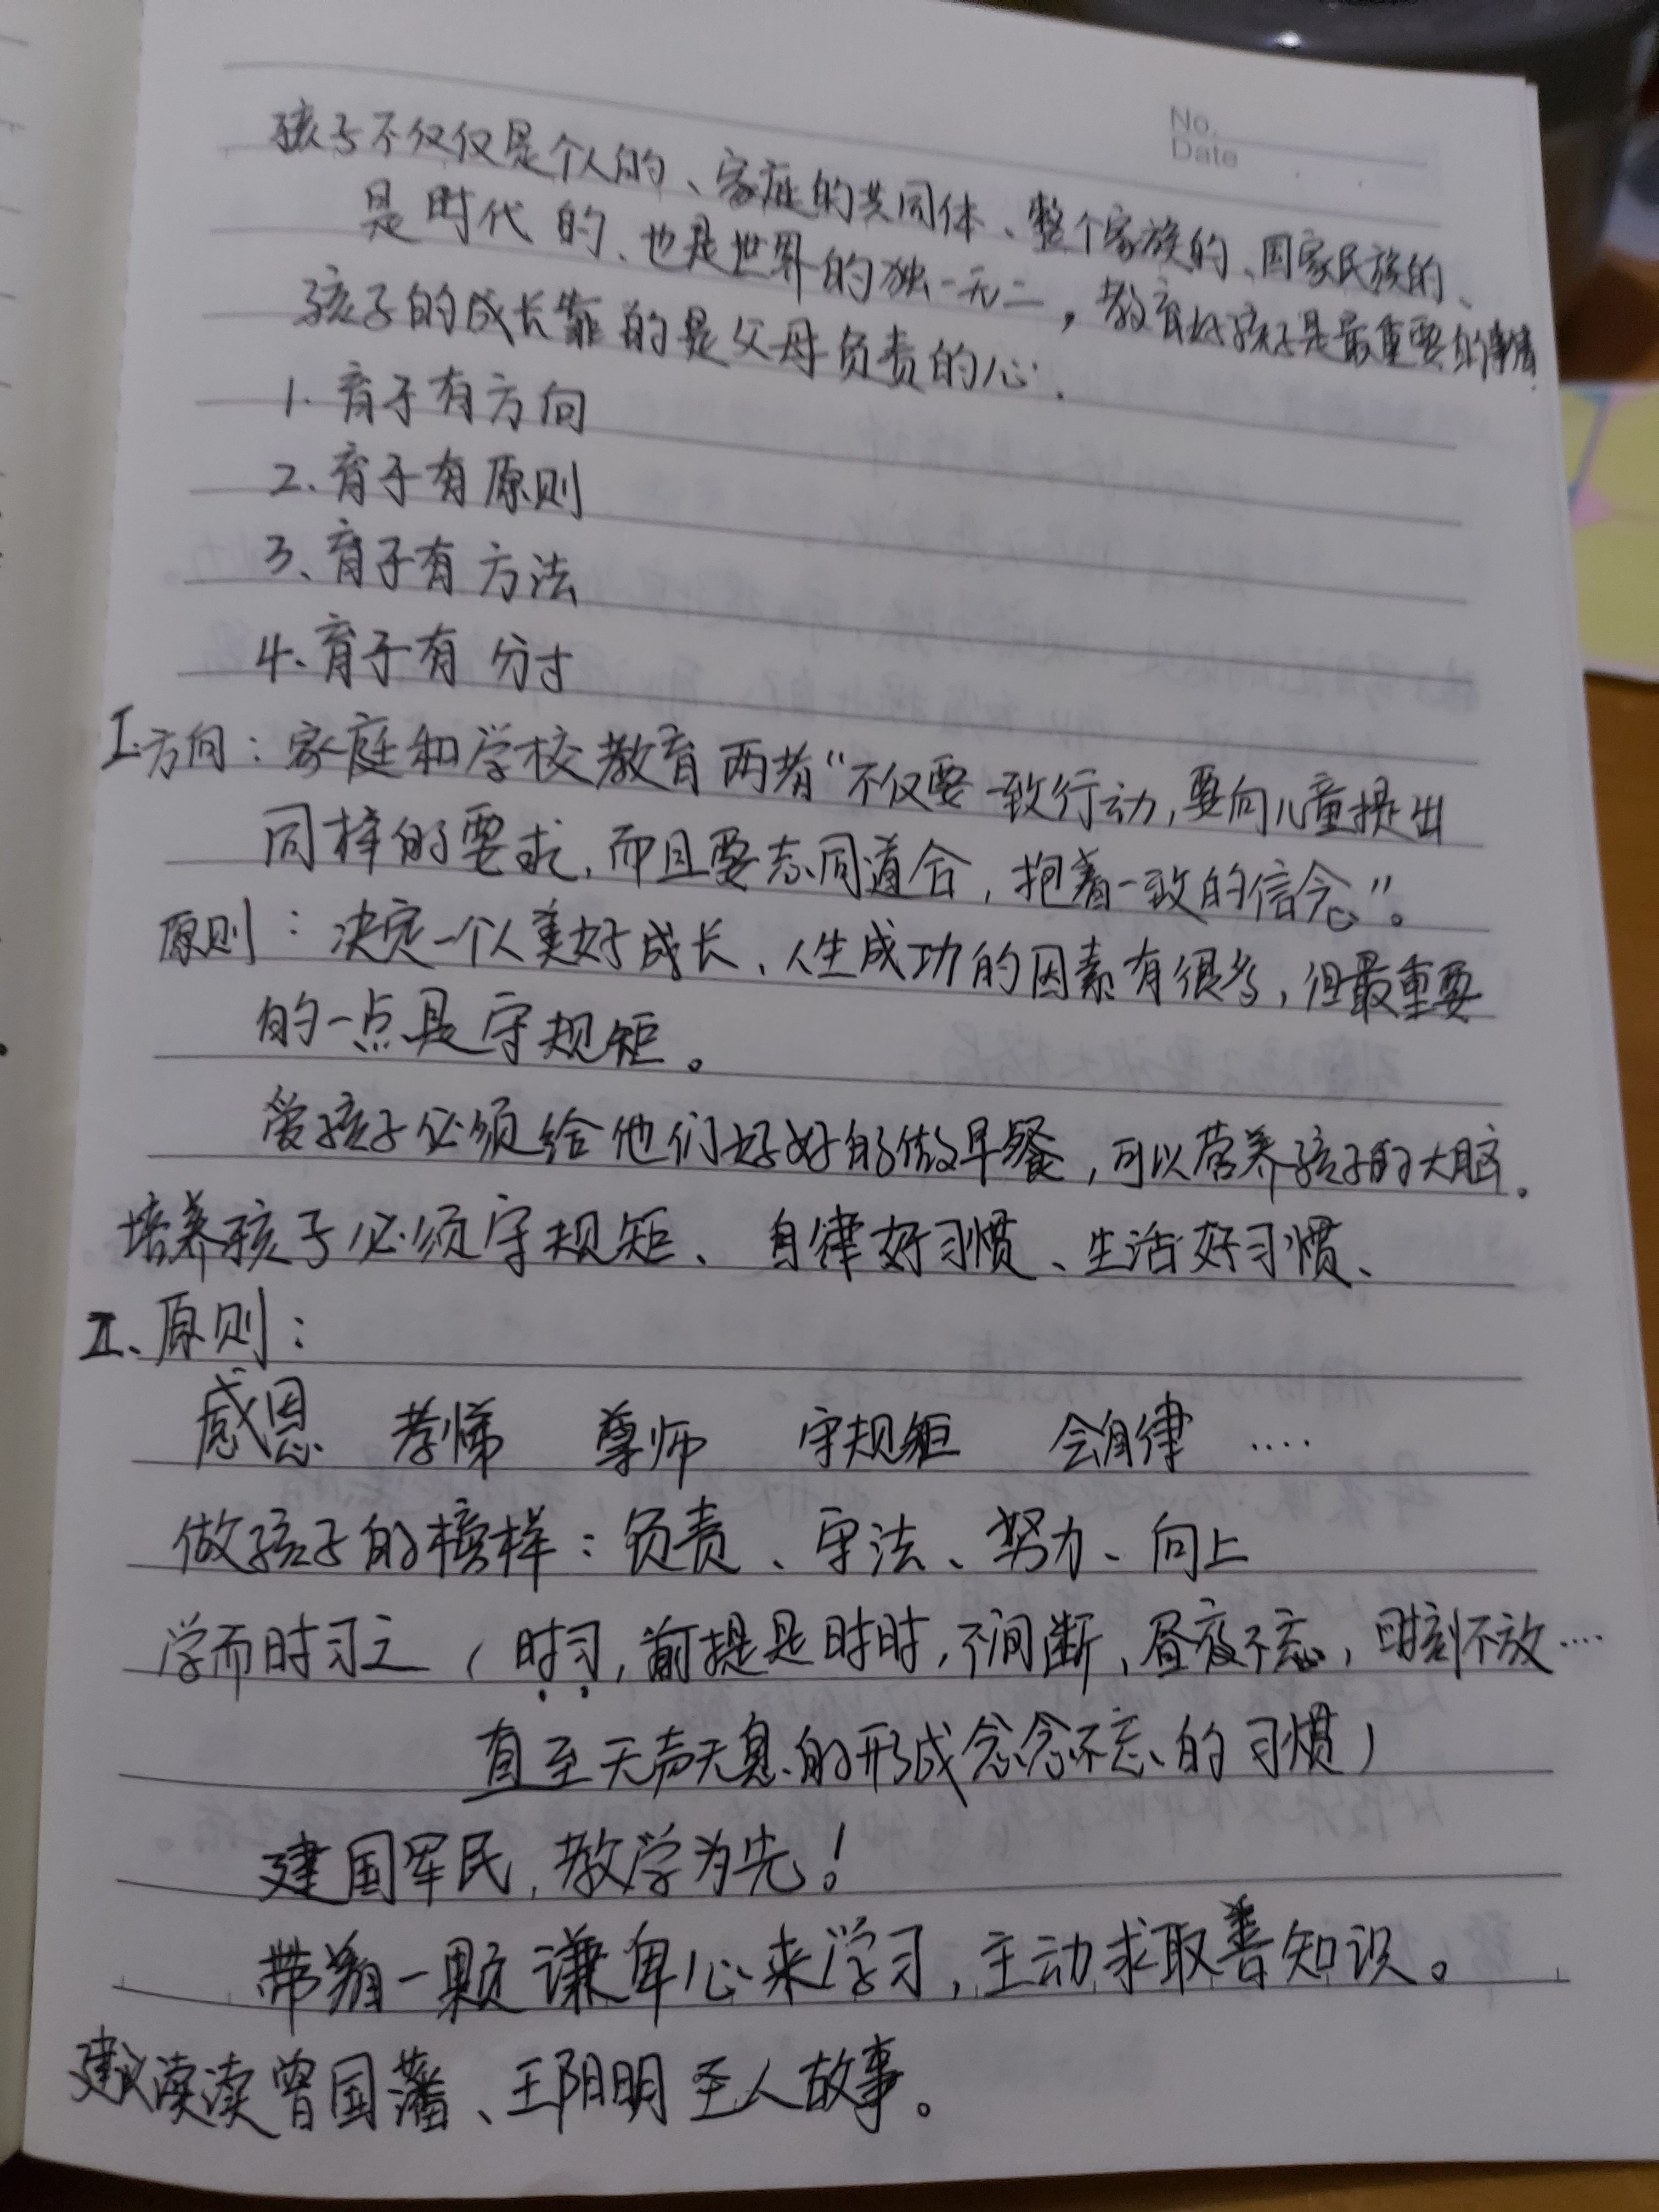 No.
Date
孩子不仅仅是个人的、家庭的共同体、整个家族的、国家民族的、
是时代的、也是世界的独一无二，教育好孩子是最重要的事情
孩子的成长靠的是父母负责的心.
1. 育子有方向
2. 育子有原则
3、育子有方法
4、育子有分寸
I.方向：家庭和学校教育两者“不仅要一致行动,要向儿童提出
同样的要求,而且要志同道合，抱着一致的信念”。
原则：决定一个人美好成长、人生成功的因素有很多，但最重要
的一点是守规矩。
爱孩子必须给他们好好的做早餐，可以营养孩子的大脑。
培养孩子必须守规矩、自律好习惯、生活好习惯、
II、原则：
感恩 孝悌 尊师 守规矩 会自律 ····
做孩子的榜样：负责、守法、努力、向上
学而时习之（时习，前提是时时，不间断，昼夜不忘，时刻不放····
直至无声无息的形成念念不忘的习惯）
建国军民，教学为先！
带着一颗谦卑心来学习，主动求取善知识。
建议读读曾国藩、王阳明圣人故事。